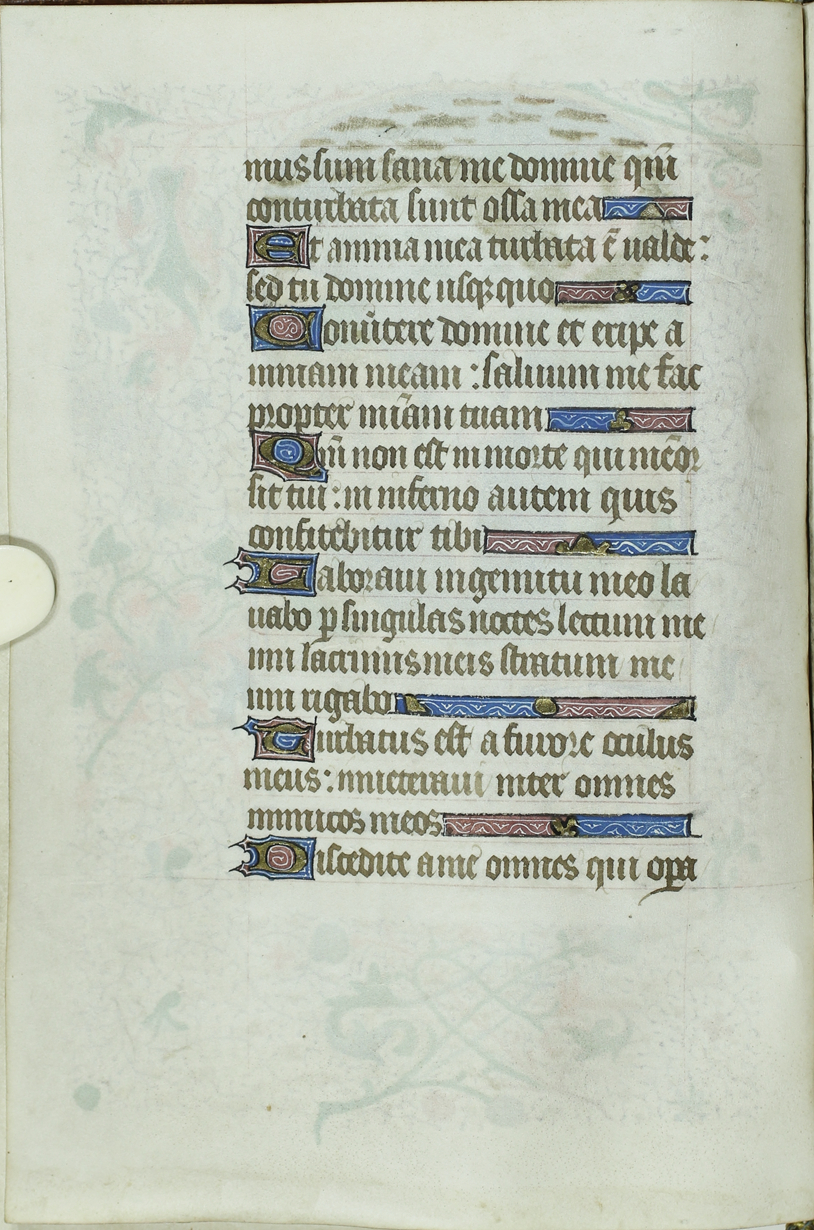 mus sum sana me domine qm̄
conturbata sunt ossa mea
Et anima mea turbata ē ualde :
sed tu domine usqꝫ quo
Conũtere domine et eripe a
nimam meam : saluum me fac
propter miãm tuam
Qm̄ non est in morte qui mẽor
sit tui : in inferno autem quis
confitebitur tibi
Laboraui in gemitu meo la
uabo ꝑ singulas noctes lectum me
um lacrimis meis stratum me
um rigabo
Turbatus est a furore oculus
meus : inueteraui inter omnes
inimicos meos
Discedite a me omnes qui oꝑa